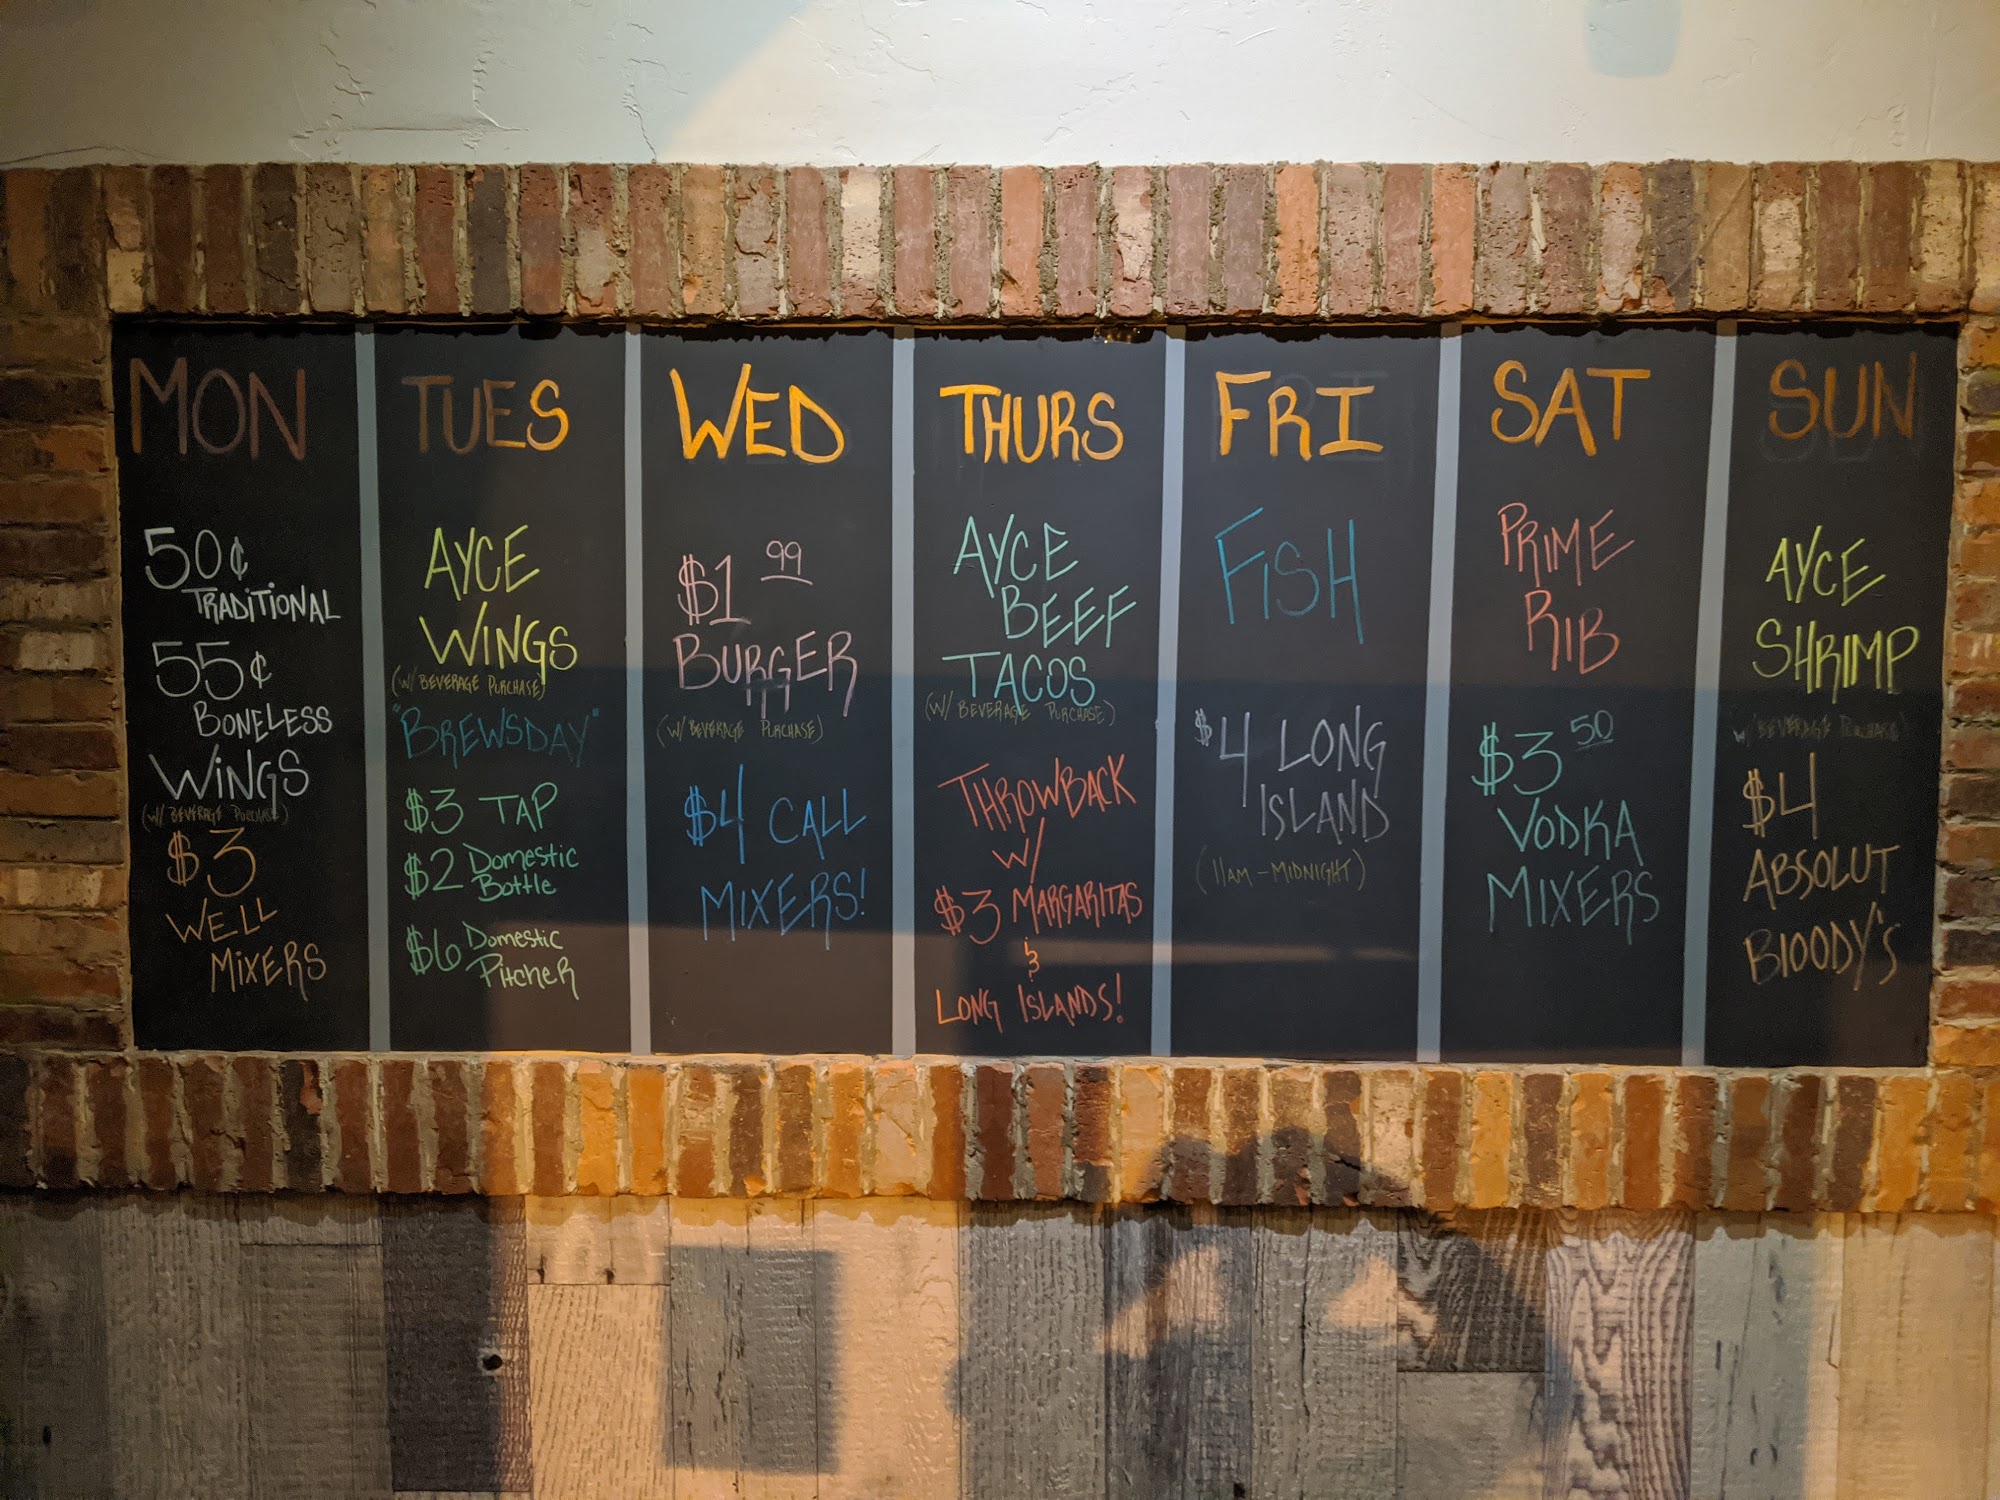 MON
50¢
TRADITIONAL
55¢
BONELESS
WINGS
(W/ BEVERAGE PURCHASE)
$3
WELL
MIXERS
TUES
AYCE
WINGS
(W/ BEVERAGE PURCHASE)
"BREWSDAY"
$3 TAP
$2 Domestic
Bottle
$6 Domestic
Pitcher
WED
$1 99
BURGER
(W/ BEVERAGE PURCHASE)
$4 CALL
MIXERS!
THURS
AYCE
BEEF
TACOS
(W/ BEVERAGE PURCHASE)
THROWBACK
W/
$3 MARGARITAS
&
LONG ISLANDS!
FRI
FISH
$4 LONG
ISLAND
(11AM-MIDNIGHT)
SAT
PRIME
RIB
$3 50
VODKA
MIXERS
SUN
AYCE
SHRIMP
W/ BEVERAGE PURCHASE)
$4
ABSOLUT
BlOODY'S